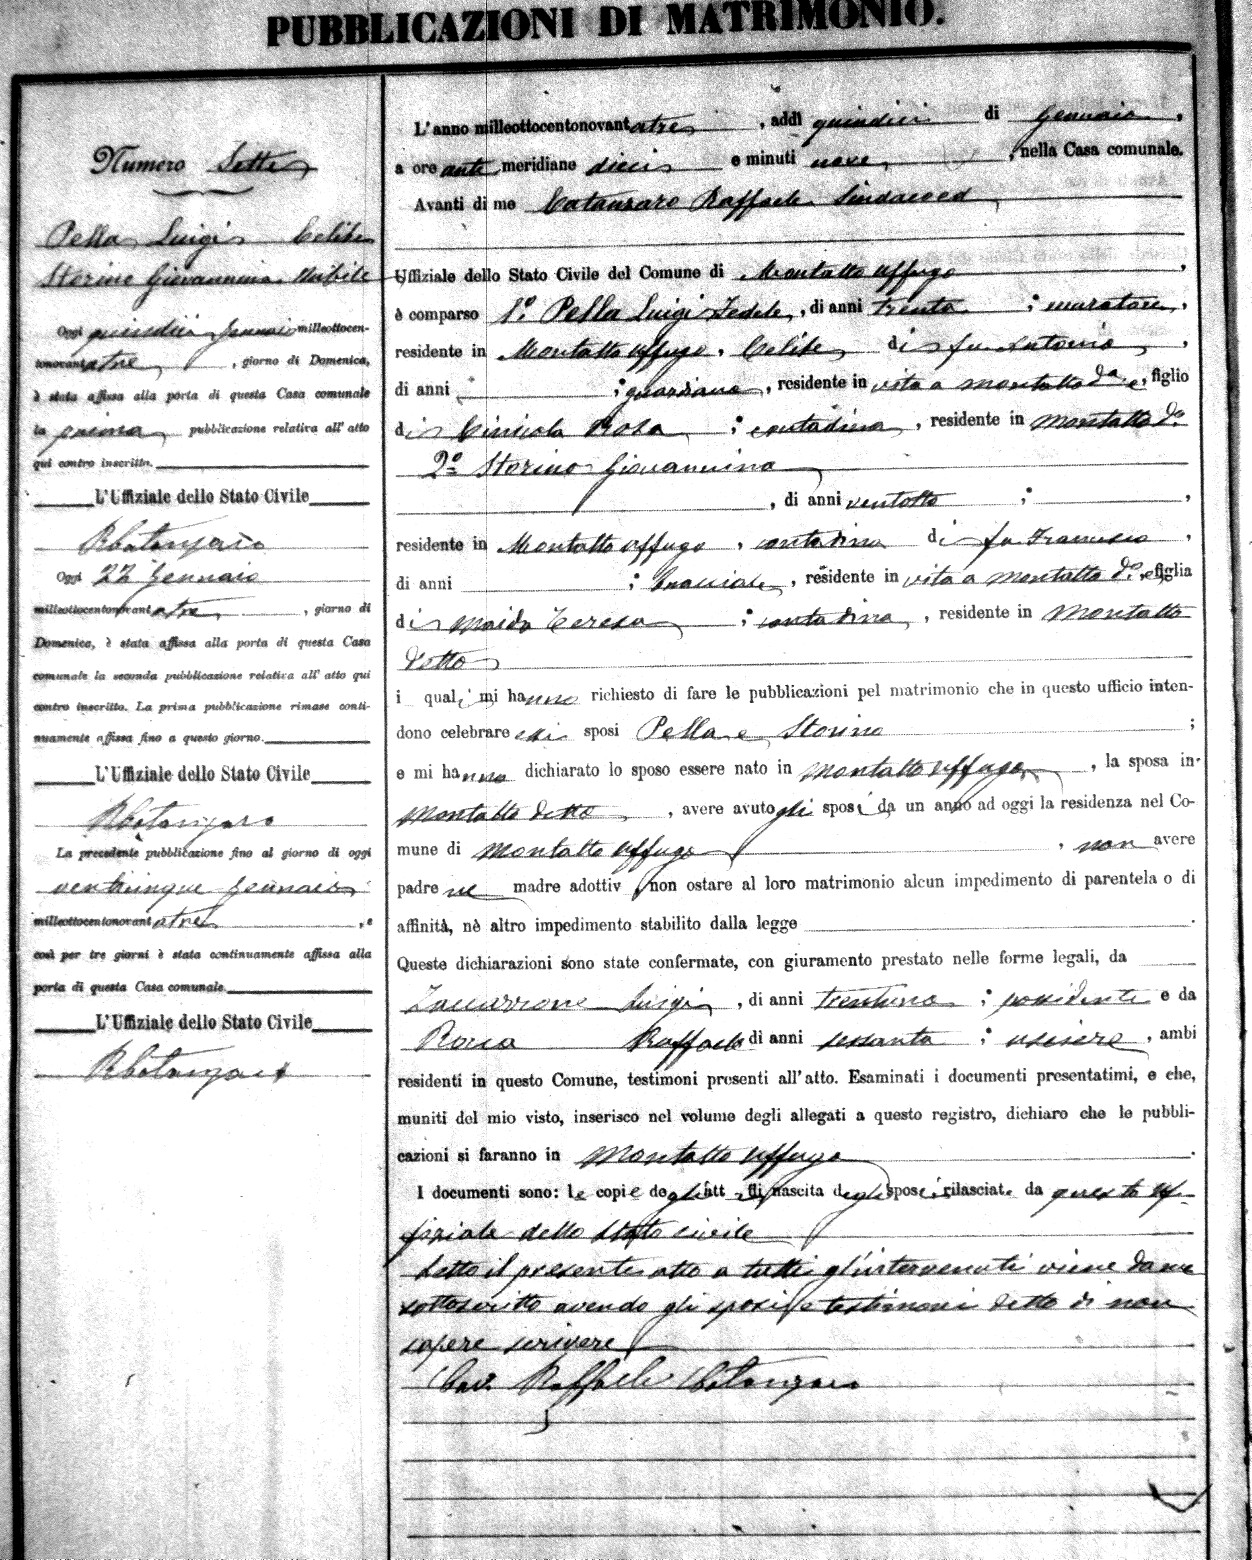 PUBBLICAZIONI DI MATRIMONIO.
Numero Sette
Pella Luigi Celibe
Storino Giovannina Nubile
Oggi quindici Gennaio milleottocen-
tonovantatre, giorno di Domenica,
è stata affissa alla porta di questa Casa comunale
la prima pubblicazione relativa all'atto
qui contro inscritto.
L'Uffiziale dello Stato Civile
RCatanzaro
Oggi 22 Gennaio
milleottocentonovantatre, giorno di
Domenica, è stata affissa alla porta di questa Casa
comunale la seconda pubblicazione relativa all'atto qui
contro inscritto. La prima pubblicazione rimase conti-
nuamente affissa fino a questo giorno.
L'Uffiziale dello Stato Civile
RCatanzaro
La precedente pubblicazione fino al giorno di oggi
venticinque Gennaio
milleottocentonovantatre, e
così per tre giorni è stata continuamente affissa alla
porta di questa Casa comunale.
L'Uffiziale dello Stato Civile
RCatanzaro
L'anno milleottocentonovantatre, addì quindici di Gennaio,
a ore anti meridiane dieci e minuti nove, nella Casa comunale.
Avanti di me Catanzaro Raffaele Sindaco ed
Uffiziale dello Stato Civile del Comune di Montalto Uffugo,
è comparso 1.º Pella Luigi Fedele, di anni trenta; muratore,
residente in Montalto Uffugo, Celibe di fu Antonio,
di anni ; guardiano, residente in vita a Montalto d.º e, figlio
di Rosa ; contadina, residente in Montalto d.º
2.º Storino Giovannina
, di anni ventotto ; ,
residente in Montalto Uffugo, contadina di fu Francesco,
di anni ; bracciale, residente in vita a Montalto d.º e, figlia
di Maida Teresa ; contadina, residente in Montalto
detto
i quali mi hanno richiesto di fare le pubblicazioni pel matrimonio che in questo ufficio inten-
dono celebrare essi sposi Pella e Storino ;
e mi hanno dichiarato lo sposo essere nato in Montalto Uffugo, la sposa in
Montalto detto, avere avuto gli sposi da un anno ad oggi la residenza nel Co-
mune di Montalto Uffugo, non avere
padre ne madre adottiv , non ostare al loro matrimonio alcun impedimento di parentela o di
affinità, nè altro impedimento stabilito dalla legge .
Queste dichiarazioni sono state confermate, con giuramento prestato nelle forme legali, da
Zuccarrone Luigi, di anni trentuno ; possidente e da
Raffaele di anni sessanta ; usciere, ambi
residenti in questo Comune, testimoni presenti all'atto. Esaminati i documenti presentatimi, e che,
muniti del mio visto, inserisco nel volume degli allegati a questo registro, dichiaro che le pubbli-
cazioni si faranno in Montalto Uffugo.
I documenti sono: le copie degli att di nascita degli sposi rilasciate da questo Uf-
fiziale dello stato civile
Letto il presente atto a tutti gl'intervenuti viene da me
sottoscritto avendo gli sposi e testimoni detto di non
sapere scrivere
Cav. Raffaele Catanzaro